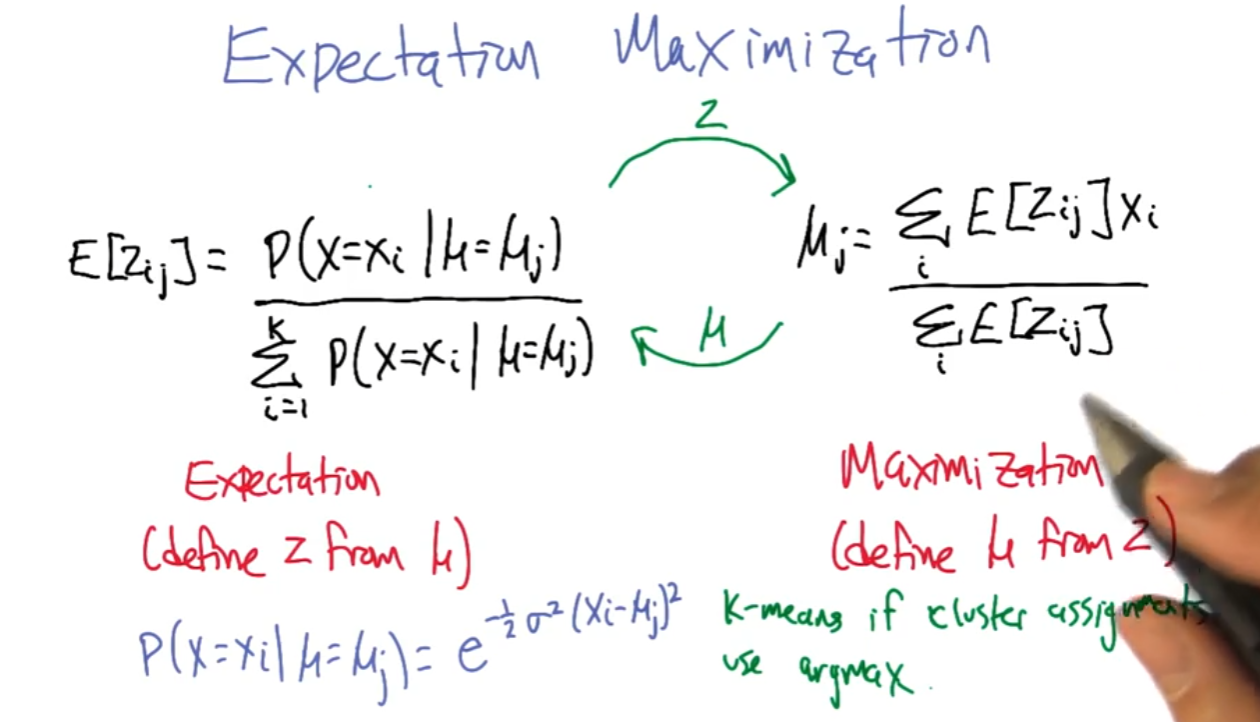 Expectation Maximization
z
E[Zij] = P(x=xi | μ=μj) / Σ_{i=1}^{k} P(x=xi | μ=μj)
μj = Σ_i E[Zij] xi / Σ_i E[Zij]
μ
Expectation
(define z from μ)
Maximization
(define μ from z)
P(x=xi | μ=μj) = e^{-1/2 σ² (xi-μj)²}
K-means if cluster assignments
use argmax.